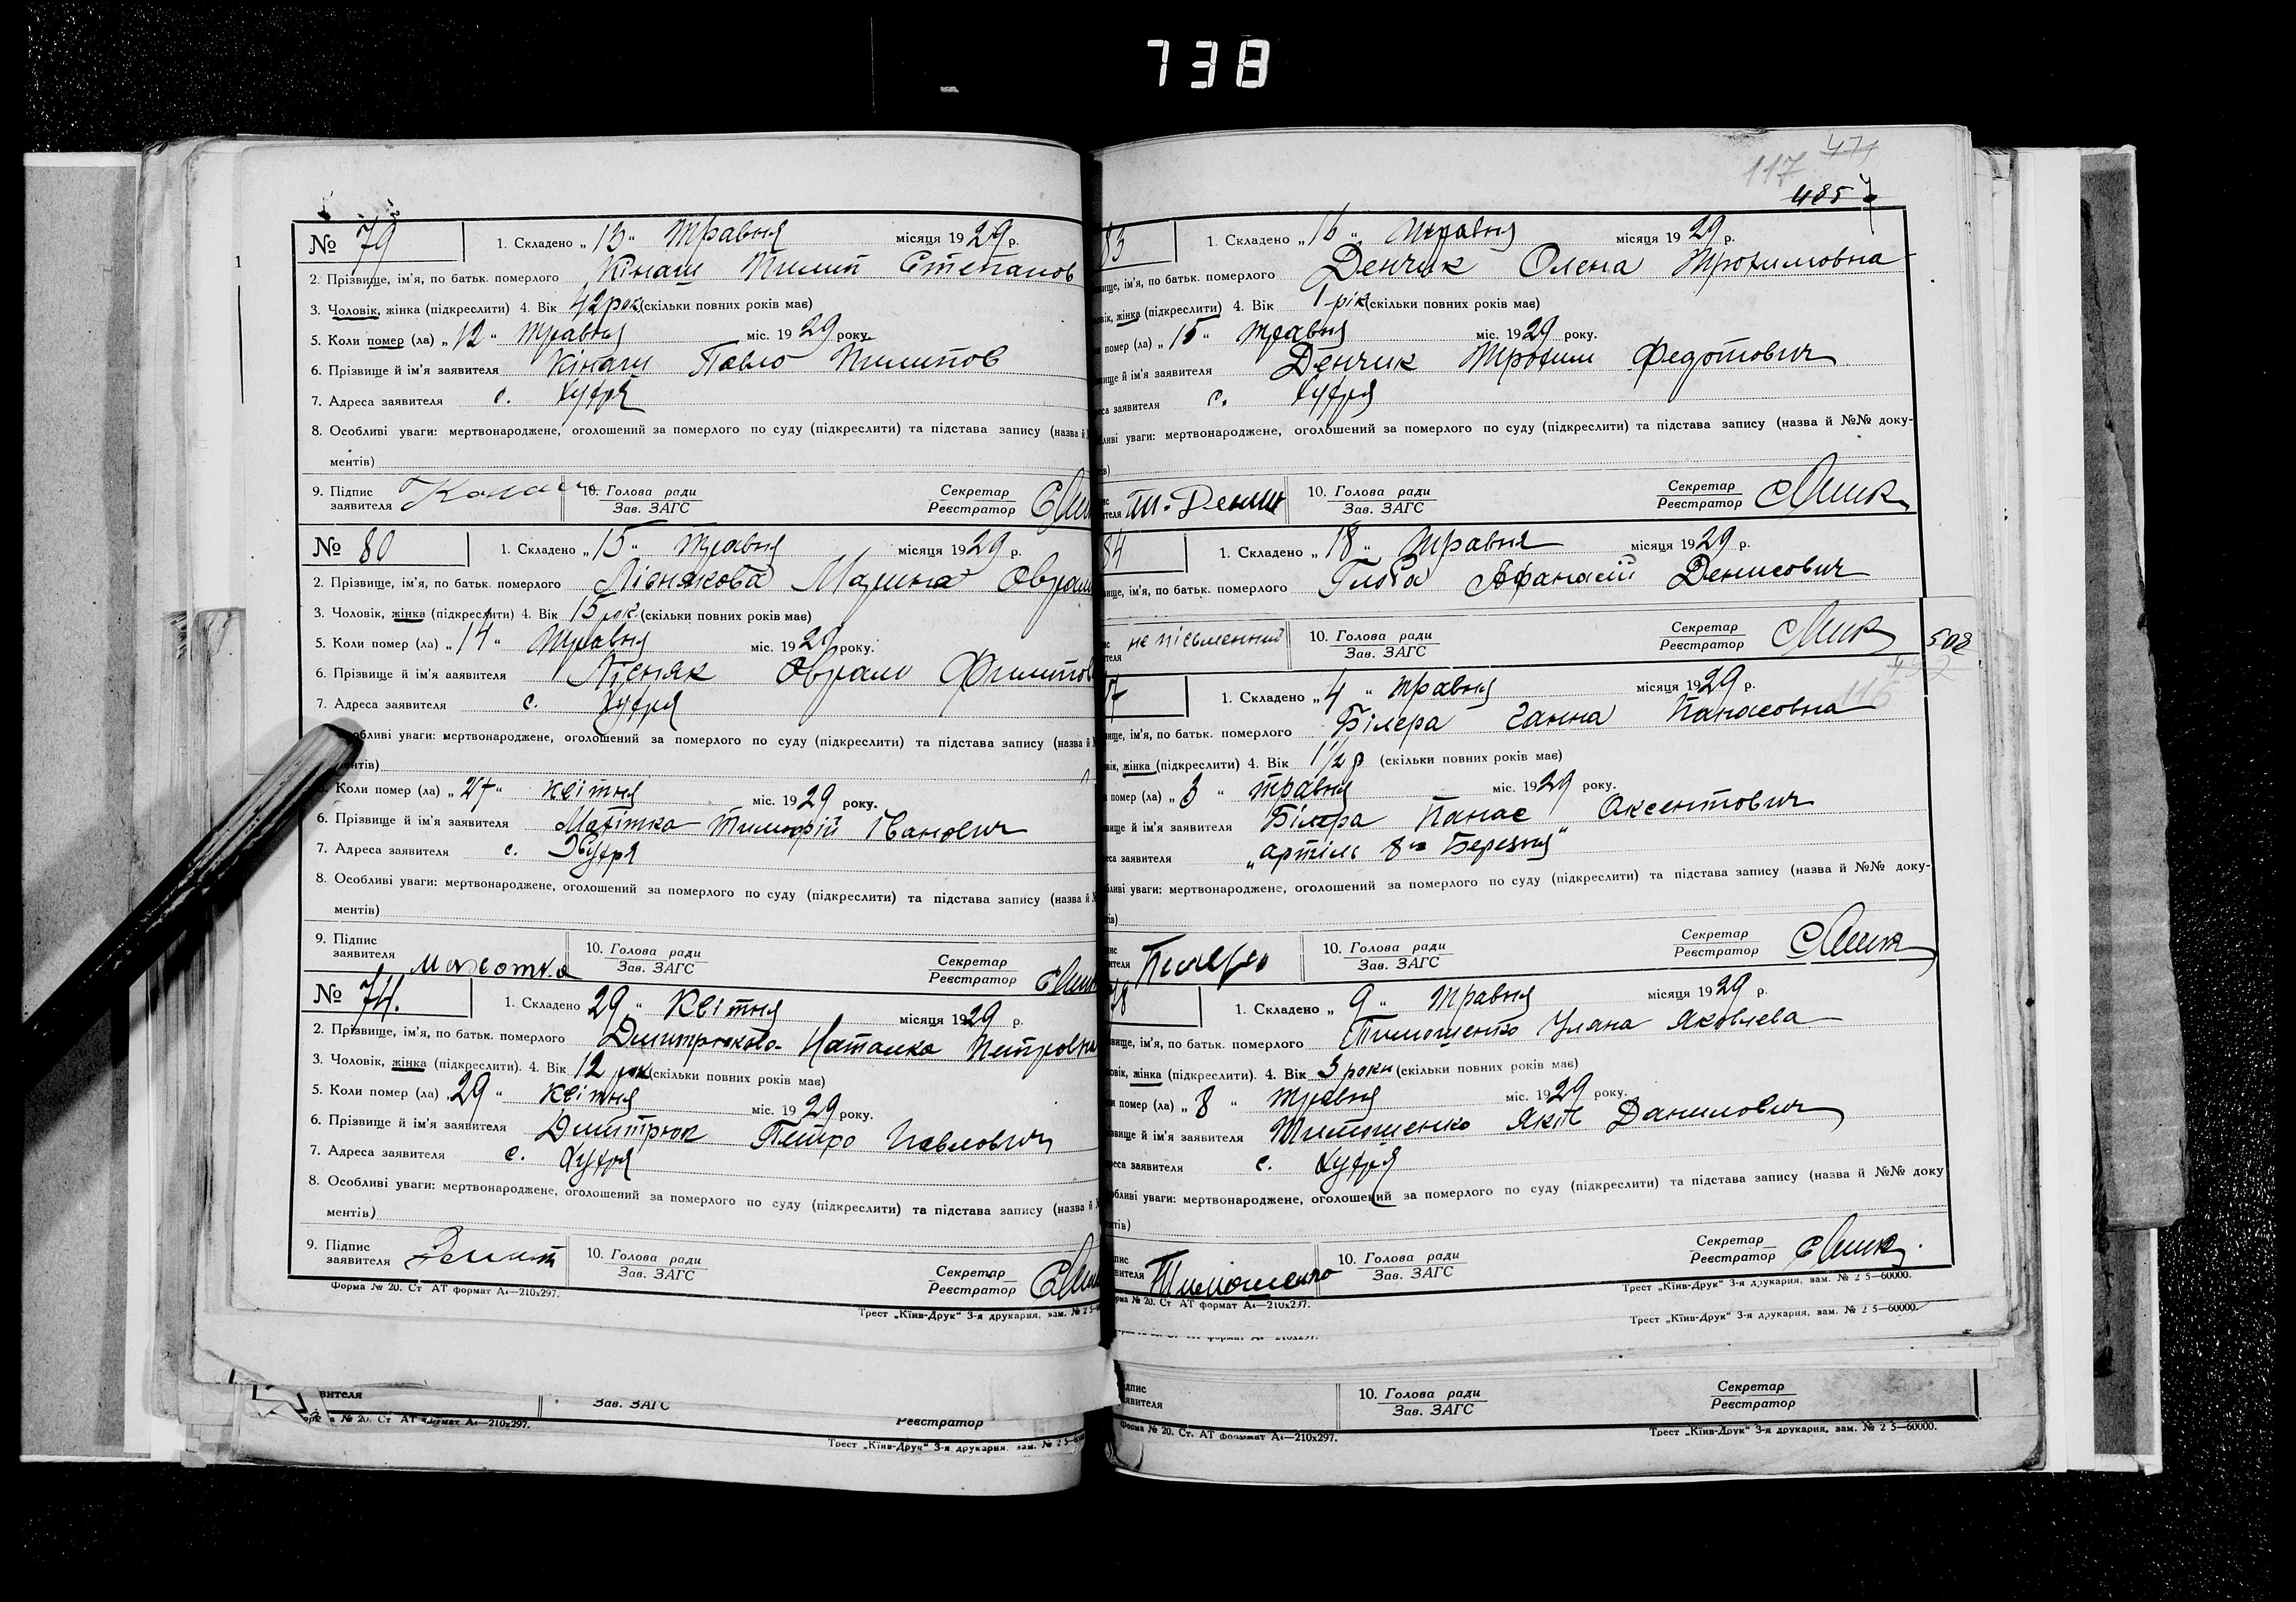 738
№ 79
1. Складено „13“ Травня місяця 1929 р.
2. Прізвище, ім'я, по батьк. померлого Кінаш Пилип Степанов
3. Чоловік, жінка (підкреслити) 4. Вік 42 рок (скільки повних років має)
5. Коли помер (ла) „12“ Травня міс. 1929 року.
6. Прізвище й ім'я заявителя Кінаш Павло Пилипов
7. Адреса заявителя с.
8. Особливі уваги: мертвонароджене, оголошений за померлого по суду (підкреслити) та підстава запису (назва й
ментів)
9. Підпис заявителя 10. Голова ради Зав. ЗАГС Секретар Реєстратор
№ 80
1. Складено „15“ Травня місяця 1929 р.
2. Прізвище, ім'я, по батьк. померлого Ліснякова Марина Оврам
3. Чоловік, жінка (підкреслити) 4. Вік 15 рок (скільки повних років має)
5. Коли помер (ла) „14“ Травня міс. 1929 року.
6. Прізвище й ім'я заявителя Лісняк Оврам Филипов
7. Адреса заявителя с.
особливі уваги: мертвонароджене, оголошений за померлого по суду (підкреслити) та підстава запису (назва й
ментів)
Коли помер (ла) „27“ квітня міс. 1929 року.
6. Прізвище й ім'я заявителя Тимофій Іванович
7. Адреса заявителя с.
8. Особливі уваги: мертвонароджене, оголошений за померлого по суду (підкреслити) та підстава запису (назва й
ментів)
9. Підпис заявителя 10. Голова ради Зав. ЗАГС Секретар Реєстратор
№ 74.
1. Складено 29 “ Квітня місяця 1929 р.
2. Прізвище, ім'я, по батьк. померлого Дмитрюкова Наталка Петровна
3. Чоловік, жінка (підкреслити). 4. Вік 12 рок (скільки повних років має)
5. Коли помер (ла) 29 “ квітня міс. 1929 року.
6. Прізвище й ім'я заявителя Дмитрюк Петро Павлович
7. Адреса заявителя с.
8. Особливі уваги: мертвонароджене, оголошений за померлого по суду (підкреслити) та підстава запису (назва й
ментів)
9. Підпис заявителя 10. Голова ради Зав. ЗАГС Секретар Реєстратор
Форма № 20. Ст АТ формат А4—210х297.
Трест „Київ-Друк“ 3-я друкарня, зам. № 2 5—6
вителя Зав. ЗАГС
Реєстратор
№ 20. Ст АТ формат А4—210х297.
Трест „Київ-Друк“ 3-я друкарня. зам. № 2 5—
117 471
485
83
1. Складено „16“ Травня місяця 1929 р.
вище, ім'я, по батьк. померлого Денчик Олена Трохимовна
овік, жінка (підкреслити) 4. Вік 1 рік (скільки повних років має)
помер (ла) „15“ травня міс. 1929 року.
вище й ім'я заявителя Денчик Трохим Федотович
реса заявителя с.
бливі уваги: мертвонароджене, оголошений за померлого по суду (підкреслити) та підстава запису (назва й №№ доку-
10. Голова ради Зав. ЗАГС Секретар Реєстратор
84
1. Складено „18“ Травня місяця 1929 р.
вище, ім'я, по батьк. померлого Глоба Афанасій Денисович
не пісьменний 10. Голова ради Зав. ЗАГС Секретар Реєстратор
508
492
116
1. Складено „4“ травня місяця 1929 р.
вище, ім'я, по батьк. померлого Білера Ганна Панасовна
овік, жінка (підкреслити) 4. Вік 1 1/2 р (скільки повних років має)
помер (ла) „3“ травня міс. 1929 року.
вище й ім'я заявителя Білера Панас Оксентович
реса заявителя „артіль 8го Березня“
бливі уваги: мертвонароджене, оголошений за померлого по суду (підкреслити) та підстава запису (назва й №№ доку-
10. Голова ради Зав. ЗАГС Секретар Реєстратор
78
1. Складено „9“ Травня місяця 1929 р.
вище, ім'я, по батьк. померлого Тимошенко Уляна Яковлева
овік, жінка (підкреслити). 4. Вік 3 роки (скільки повних років має)
помер (ла) „8“ травня міс. 1929 року.
звище й ім'я заявителя Тимошенко Яків Данилович
реса заявителя с.
обливі уваги: мертвонароджене, оголошений за померлого по суду (підкреслити) та підстава запису (назва й №№ доку
ентів)
вителя Тимошенко 10. Голова ради Зав. ЗАГС Секретар Реєстратор
Трест „Київ-Друк“ 3-я друкарня, зам. № 2 5—60000.
рма № 20. Ст АТ формат А4—210х297.
Трест „Київ-Друк“ 3-я друкарня, зам. № 2 5—60000.
дпис аявителя 10. Голова ради Зав. ЗАГС Секретар Реєстратор
Форма № 20. Ст. АТ формат А4—210х297.
Трест „Київ-Друк“ 3-я друкарня, зам. № 2 5—60000.